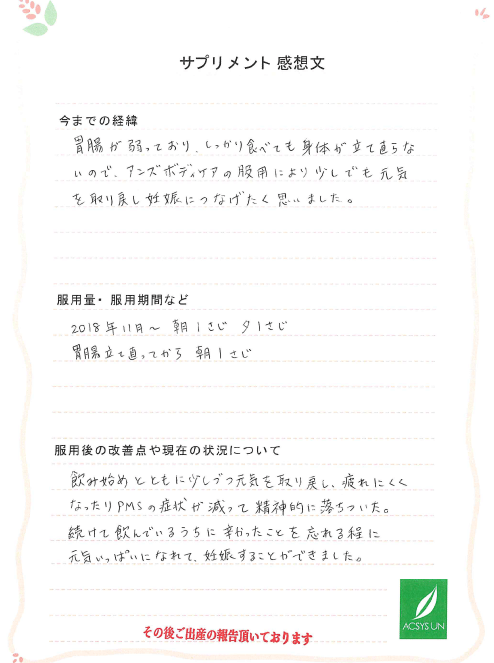 サプリメント 感想文
今までの経緯
胃腸が弱っており、しっかり食べても身体が立て直らな
いので、アンズボディケアの服用により少しでも元気
を取り戻し妊娠につなげたく思いました。
服用量・服用期間など
2018年11月～ 朝1さじ 夕1さじ
胃腸立て直ってから 朝1さじ
服用後の改善点や現在の状況について
飲み始めとともに少しづつ元気を取り戻し、疲れにくく
なったりPMSの症状が減って精神的に落ちついた。
続けて飲んでいるうちに辛かったことを忘れる程に
元気いっぱいになれて、妊娠することができました。
ACSYS UN
その後ご出産の報告頂いております